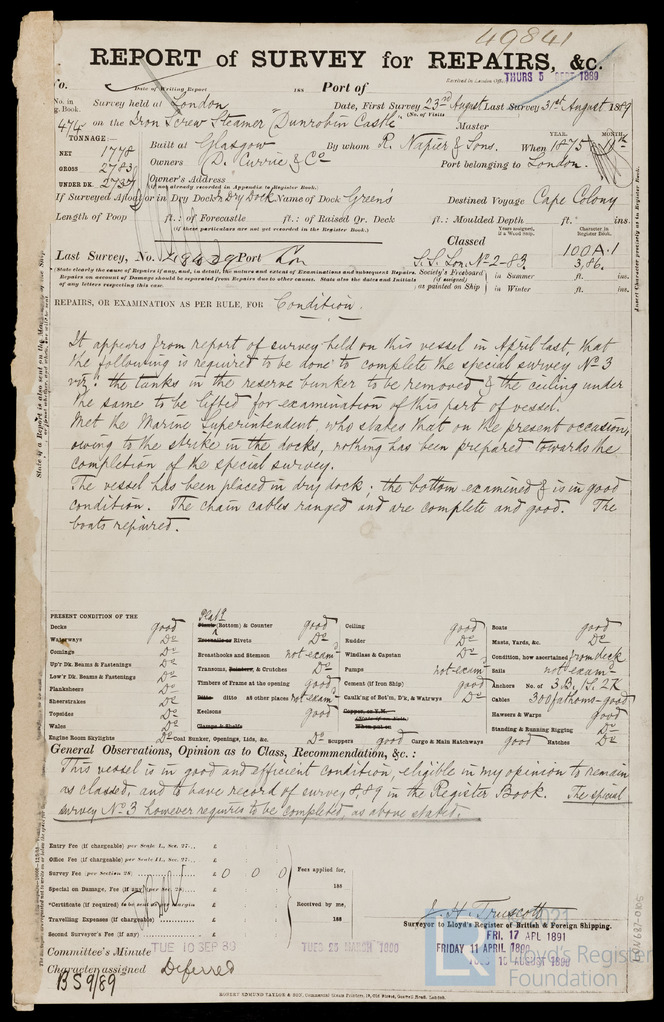 49841
REPORT of SURVEY for REPAIRS, &c.
No. Date of Writing Report 188 Port of Received in London Office THURS 5 SEPT 1889
No. in Reg. Book. Survey held at London Date, First Survey 23rd August Last Survey 31st August 1889
(No. of Visits
474 on the Iron Screw Steamer "Dunrobin Castle" Master
TONNAGE:— YEAR. MONTH.
NET 1778 Built at Glasgow By whom R. Napier & Sons. When 1875
GROSS 2783 Owners D. Currie & Co Port belonging to London.
UNDER DK. 2737 Owner's Address
(if not already recorded in Appendix to Register Book.)
If Surveyed Afloat or in Dry Dock In Dry Dock Name of Dock Green's Destined Voyage Cape Colony
Length of Poop ft.: of Forecastle ft.: of Raised Qr. Deck ft.: Moulded Depth ft. ins.
(if these particulars are not yet recorded in the Register Book.)
Years assigned, if a Wood Ship. Character in Register Book.
Classed 100 A.1
Last Survey, No. Port Lon S.S. Lon. No 2-83 3,86.
State clearly the cause of Repairs if any, and, in detail, the nature and extent of Examinations and subsequent Repairs.
Repairs on account of Damage should be separated from Repairs due to other causes. State also the dates and Initials
of any letters respecting this case.
Society's Freeboard (if assigned) as painted on Ship in Summer ft. ins.
in Winter ft. ins.
REPAIRS, OR EXAMINATION AS PER RULE, FOR Condition.
It appears from report of survey held on this vessel in April last, that
the following is required to be done to complete the special survey No 3
viz: the tanks in the reserve bunker to be removed & the ceiling under
the same to be lifted for examination of this part of vessel.
Met the Marine Superintendent, who states that on the present occasion,
owing to the strike in the docks, nothing has been prepared towards the
completion of the special survey.
The vessel has been placed in dry dock; the bottom examined & is in good
condition. The chain cables ranged and are complete and good. The
boats repaired.
PRESENT CONDITION OF THE
Decks good
Waterways Do
Comings Do
Up'r Dk. Beams & Fastenings Do
Low'r Dk. Beams & Fastenings Do
Planksheers Do
Sheerstrakes Do
Topsides Do
Wales Do
Engine Room Skylights Do
Plate
Planks (Bottom) & Counter good
Treenails or Rivets Do
Breasthooks and Stemson not exam
Transoms, Pointers, & Crutches Do
Timbers of Frame at the opening good
Ditto ditto at other places not exam
Keelsons good
Clamps & Shelfs
Coal Bunker, Openings, Lids, &c. Do
Ceiling good
Rudder Do
Windlass & Capstan Do
Pumps not exam
Cement (if Iron Ship) good
Caulk'ng of Bot'm, D'k, & Watrwys Do
Copper, or Y.M.
Scuppers good Cargo & Main Hatchways good Hatches Do
Boats good
Masts, Yards, &c. Do
Condition, how ascertained from deck
Sails not exam
Anchors No. of 3.B, 1.S, 2K
Cables 300 fathoms-good
Hawsers & Warps good
Standing & Running Rigging Do
General Observations, Opinion as to Class, Recommendation, &c.:
This vessel is in good and efficient condition, eligible in my opinion to remain
as classed, and to have record of survey 8,89 in the Register Book. The special
survey No 3 however requires to be completed, as above stated.
Entry Fee (if chargeable) per Scale I., Sec. 27... £
Office Fee (if chargeable) per Scale II., Sec. 27... £
Survey Fee (per Section 28) £ 0 0 0 Fees applied for,
Special on Damage, Fee (if any) per Sec. 28. £ 188
*Certificate (if required) to be sent as per margin £ Received by me,
Travelling Expenses (if chargeable) £ 188
Second Surveyor's Fee (if any) £
J. H. Truscott
Surveyor to Lloyd's Register of British & Foreign Shipping.
Committee's Minute TUE 10 SEP 89 TUES 25 MARCH 1890 FRI. 17 APL 1891
FRIDAY 11 APRIL 1890
TUES 19 AUGUST 1890
Character assigned Deferred
BS 9/89
ROBERT EDMUND TAYLOR & SON, Commercial Steam Printers, 19, Old Street, Goswell Road, London.
2021
Lloyd's Register
Foundation
LON687-0105